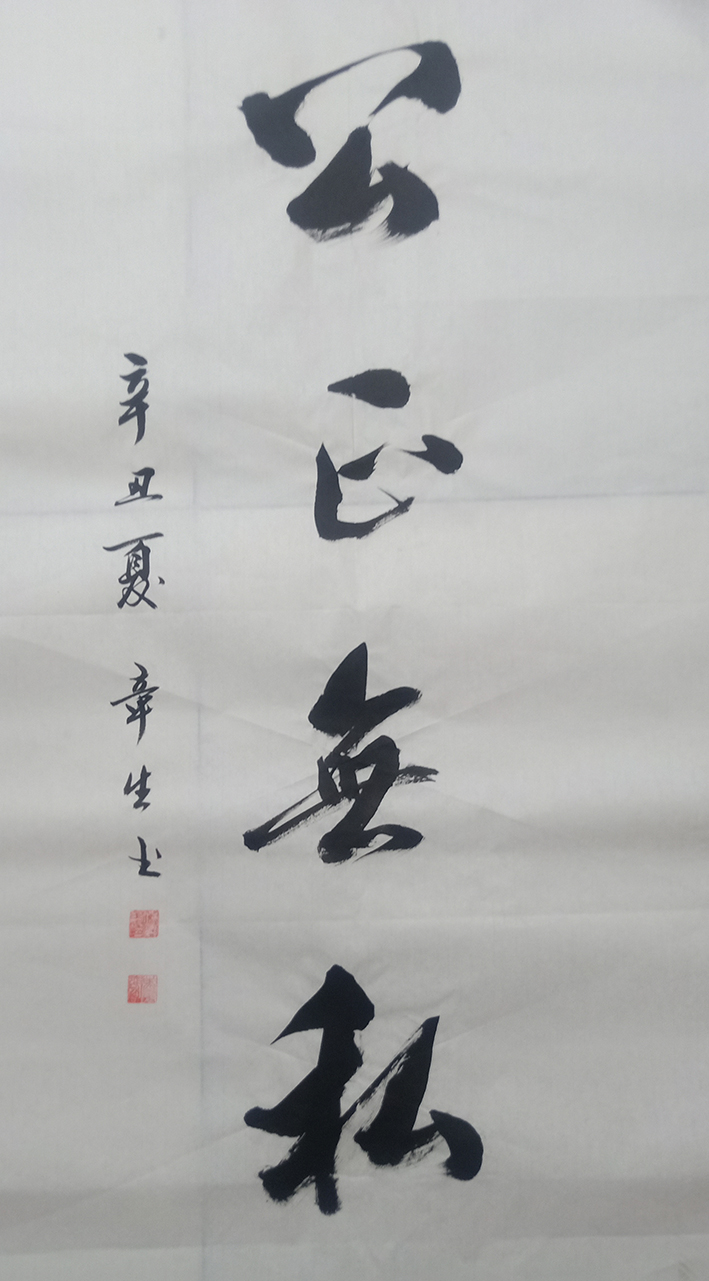 公正無私
辛丑夏 章生书